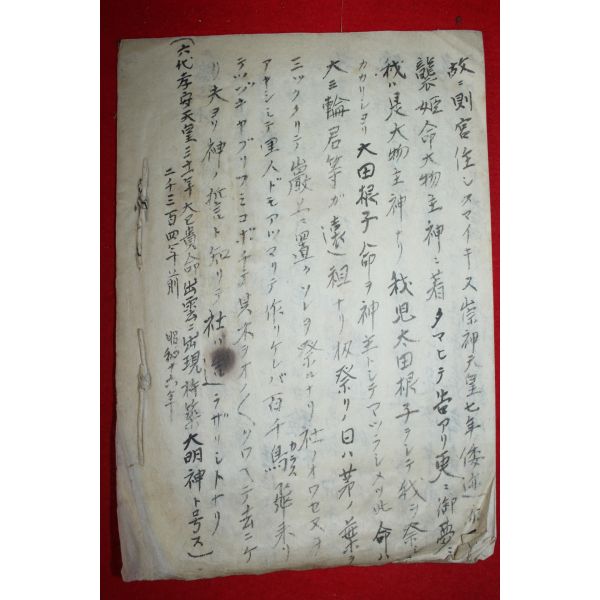 故ニ則宮住シタマイキス崇神天皇七年倭迹
襲姫命大物主神ニ着タマヒテ告アリ更ニ御夢ニ
我ハ是大物主神ナリ我児太田根子ヲシテ我ヲ祭ミ
カカリシヨリ大田根子命ヲ神主トシテマツラシメツ此命ハ
大三輪君等ガ遠祖ナリ扨祭リノ日ハ茅ノ葉ヲ
三ツクリテ巌上ニ置ソレヲ祭ルナリ社ノオワセヌヲ
アヤシミテ里人ドモアツマリテ作リケレバ百千烏カラス飛来リ
テツツキヤブリフミコボチテ其木ヲオノ〳〵クワヘテ去ニケ
リ夫ヨリ神ノ誓ト知リテ社ハ造ラザリシトナリ
(六代孝安天皇三十一年大己貴命出雲ニ出現杵築大明神ト号ス)
二千三百四十年前 昭和十六年